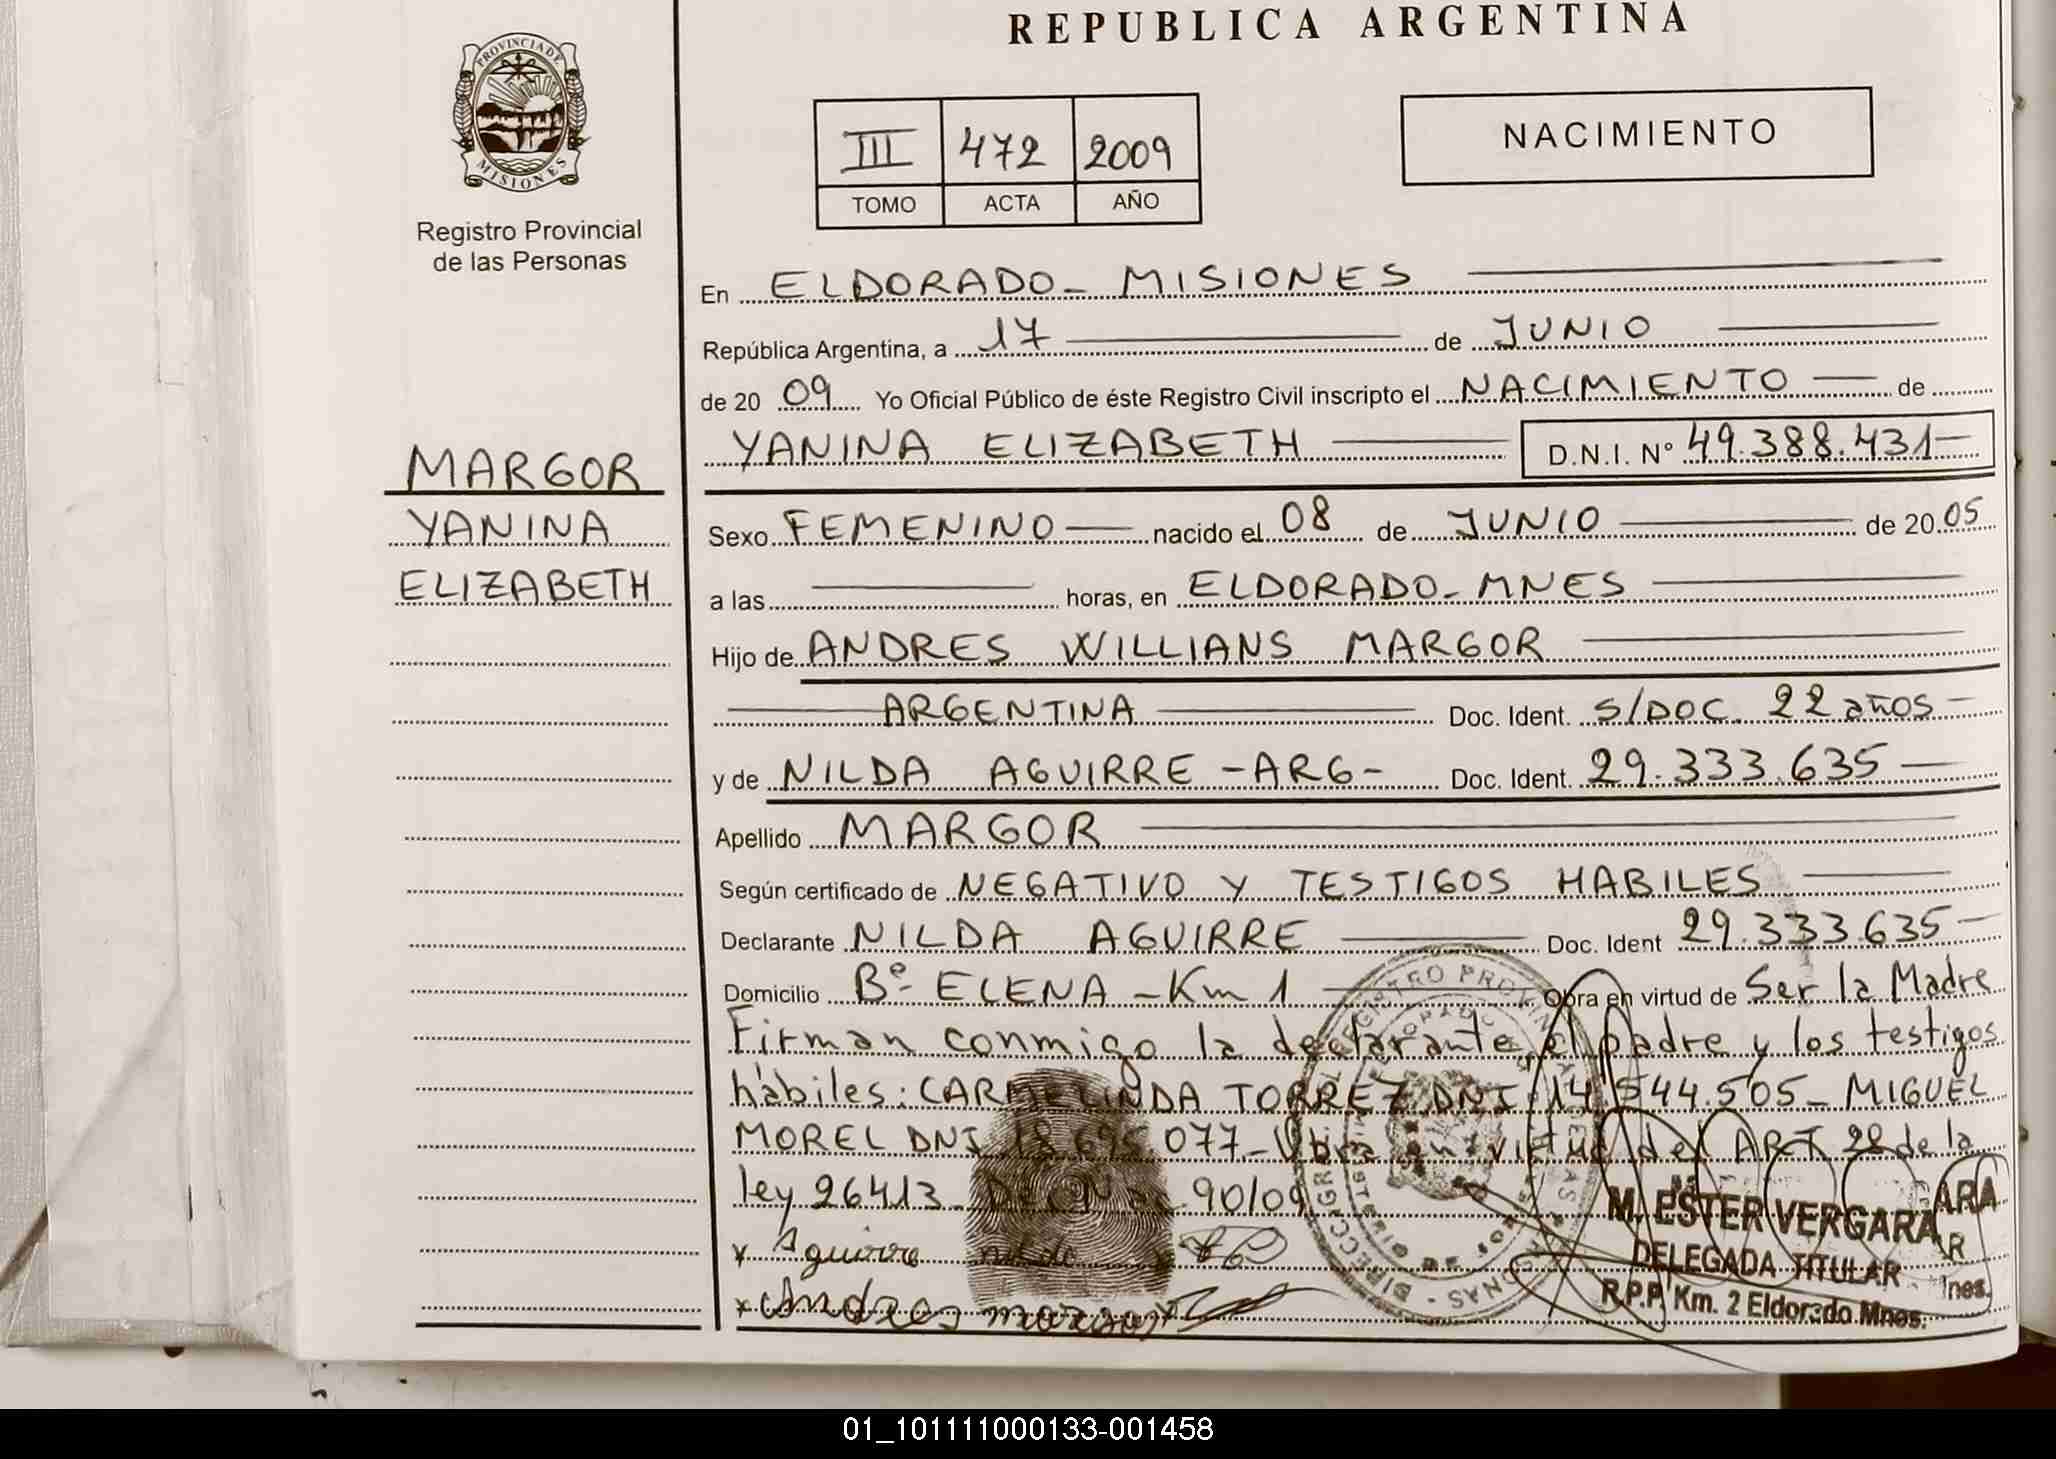 REPUBLICA ARGENTINA
PROVINCIA DE
MISIONES
Registro Provincial
de las Personas
III 472 2009
TOMO ACTA AÑO
NACIMIENTO
En ELDORADO - MISIONES
República Argentina, a 17 de JUNIO
de 20 09 Yo Oficial Público de éste Registro Civil inscripto el NACIMIENTO de
YANINA ELIZABETH D.N.I. Nº 49.388.431
MARGOR
YANINA
ELIZABETH
Sexo FEMENINO nacido el 08 de JUNIO de 20 05
a las horas, en ELDORADO - MNES
Hijo de ANDRES WILLIANS MARGOR
ARGENTINA Doc. Ident. S/DOC. 22 años
y de NILDA AGUIRRE -ARG- Doc. Ident. 29.333.635
Apellido MARGOR
Según certificado de NEGATIVO Y TESTIGOS HABILES
Declarante NILDA AGUIRRE Doc. Ident 29.333.635
Domicilio Bº ELENA - Km 1 Obra en virtud de Ser la Madre
Firman conmigo la declarante, el padre y los testigos
hábiles: CARMELINDA TORREZ DNI 14.544.505 - MIGUEL
MOREL DNI 18.695.077 - Obra en virtud del ART 28 de la
ley 26413 - 90/09
x Aguirre nilda x
x Andres margor x
M. ESTER VERGARA
DELEGADA TITULAR
R.P.P. Km. 2 Eldorado Mnes.
01_101111000133-001458